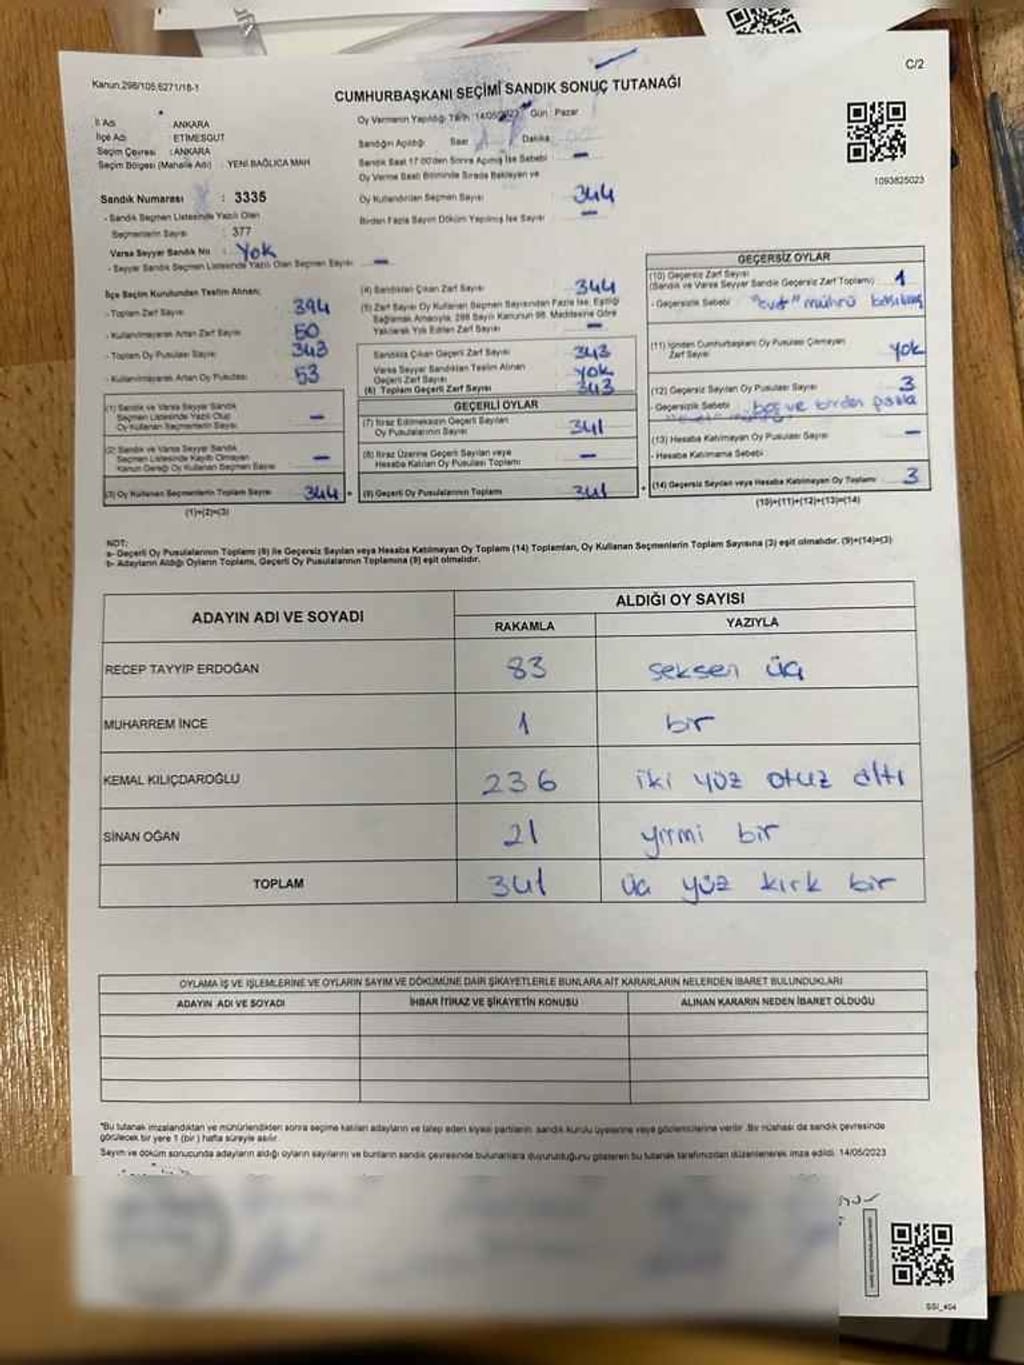 C/2
Kanun.298/105,6271/18-1
CUMHURBAŞKANI SEÇİMİ SANDIK SONUÇ TUTANAĞI
İl Adı ANKARA
İlçe Adı ETİMESGUT
Seçim Çevresi : ANKARA
Seçim Bölgesi (Mahalle Adı) : YENİ BAĞLICA MAH
Oy Vermenin Yapıldığı Tarih : 14/05/2023 Gün : Pazar
Sandığın Açıldığı Saat Dakika
Sandık Saat 17:00'den Sonra Açılmış İse Sebebi –
Oy Verme Saati Bitiminde Sırada Bekleyen ve
Oy Kullandırılan Seçmen Sayısı 344
Birden Fazla Sayım Döküm Yapılmış İse Sayısı –
1093825023
Sandık Numarası : 3335
- Sandık Seçmen Listesinde Yazılı Olan
Seçmenlerin Sayısı : 377
Varsa Seyyar Sandık No : Yok
- Seyyar Sandık Seçmen Listesinde Yazılı Olan Seçmen Sayısı –
İlçe Seçim Kurulundan Teslim Alınan;
- Toplam Zarf Sayısı 394
- Kullanılmayarak Artan Zarf Sayısı 50
- Toplam Oy Pusulası Sayısı 343
- Kullanılmayarak Artan Oy Pusulası 53
(1) Sandık ve Varsa Seyyar Sandık
Seçmen Listesinde Yazılı Olup
Oy Kullanan Seçmenlerin Sayısı –
(2) Sandık ve Varsa Seyyar Sandık
Seçmen Listesinde Kayıtlı Olmayan
Kanun Gereği Oy Kullanan Seçmen Sayısı –
(3) Oy Kullanan Seçmenlerin Toplam Sayısı 344
(1)+(2)=(3)
(4) Sandıktan Çıkan Zarf Sayısı 344
(5) Zarf Sayısı Oy Kullanan Seçmen Sayısından Fazla İse, Eşitliği
Sağlamak Amacıyla, 298 Sayılı Kanunun 98. Maddesine Göre
Yakılarak Yok Edilen Zarf Sayısı –
Sandıkta Çıkan Geçerli Zarf Sayısı 343
Varsa Seyyar Sandıktan Teslim Alınan
Geçerli Zarf Sayısı YOK
(6) Toplam Geçerli Zarf Sayısı 343
GEÇERLİ OYLAR
(7) İtiraz Edilmeksizin Geçerli Sayılan
Oy Pusulalarının Sayısı 341
(8) İtiraz Üzerine Geçerli Sayılan veya
Hesaba Katılan Oy Pusulası Toplamı –
(9) Geçerli Oy Pusulalarının Toplamı 341
GEÇERSİZ OYLAR
(10) Geçersiz Zarf Sayısı
(Sandık ve Varsa Seyyar Sandık Geçersiz Zarf Toplamı) 1
- Geçersizlik Sebebi "evet" mührü basılmış
(11) İçinden Cumhurbaşkanı Oy Pusulası Çıkmayan
Zarf Sayısı yok
(12) Geçersiz Sayılan Oy Pusulası Sayısı 3
- Geçersizlik Sebebi boş ve birden fazla
(13) Hesaba Katılmayan Oy Pusulası Sayısı –
- Hesaba Katılmama Sebebi
(14) Geçersiz Sayılan veya Hesaba Katılmayan Oy Toplamı 3
(10)+(11)+(12)+(13)=(14)
NOT:
a- Geçerli Oy Pusulalarının Toplamı (9) ile Geçersiz Sayılan veya Hesaba Katılmayan Oy Toplamı (14) Toplamları, Oy Kullanan Seçmenlerin Toplam Sayısına (3) eşit olmalıdır. (9)+(14)=(3)
b- Adayların Aldığı Oyların Toplamı, Geçerli Oy Pusulalarının Toplamına (9) eşit olmalıdır.
ADAYIN ADI VE SOYADI ALDIĞI OY SAYISI
RAKAMLA YAZIYLA
RECEP TAYYİP ERDOĞAN 83 seksen üç
MUHARREM İNCE 1 bir
KEMAL KILIÇDAROĞLU 236 iki yüz otuz altı
SİNAN OĞAN 21 yirmi bir
TOPLAM 341 üç yüz kırk bir
OYLAMA İŞ VE İŞLEMLERİNE VE OYLARIN SAYIM VE DÖKÜMÜNE DAİR ŞİKAYETLERLE BUNLARA AİT KARARLARIN NELERDEN İBARET BULUNDUKLARI
ADAYIN ADI VE SOYADI İHBAR İTİRAZ VE ŞİKAYETİN KONUSU ALINAN KARARIN NEDEN İBARET OLDUĞU
*Bu tutanak imzalandıktan ve mühürlendikten sonra seçime katılan adayların ve talep eden siyasi partilerin, sandık kurulu üyelerine veya gözlemcilerine verilir. Bir nüshası da sandık çevresinde
görülecek bir yere 1 (bir) hafta süreyle asılır.
Sayım ve döküm sonucunda adayların aldığı oyların sayılarını ve bunların sandık çevresinde bulunanlara duyurulduğunu gösteren bu tutanak tarafımızdan düzenlenerek imza edildi. 14/05/2023
SSI_404